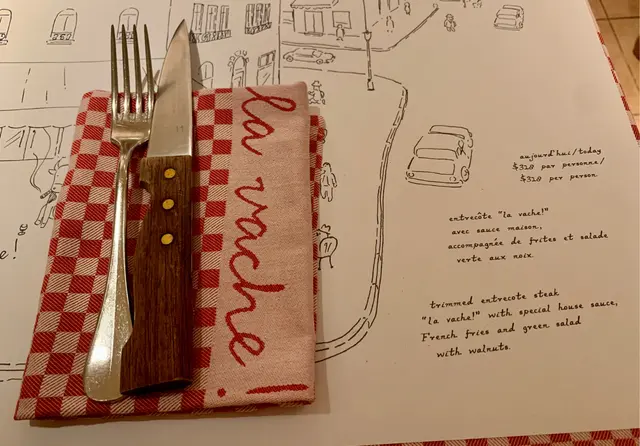 la vache!
e!
aujourd'hui/today
$328 par personne/
$328 per person
entrecôte "la vache!"
avec sauce maison,
accompagnée de frites et salade
verte aux noix
trimmed entrecote steak
"la vache!" with special house sauce,
French fries and green salad
with walnuts.